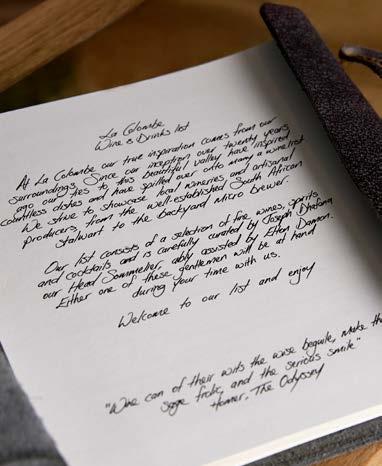 La Colombe
Wine & Drinks list
At La Colombe our true inspiration comes from our
surroundings. Since our inception over twenty years
ago our ties to this beautiful valley have inspired
countless dishes and have spilled over onto many a winelist.
We strive to showcase local wineries and artisanal
producers, from the well-established South African
stalwart to the backyard Micro brewer.
Our list consists of a selection of fine wines, spirits
and cocktails and is carefully curated by Joseph Dhafana
our Head Sommelier, ably assisted by Elton Damon.
Either one of these gentlemen will be at hand
during your time with us.
Welcome to our list and enjoy
"Wine can of their wits the wise beguile, Make the
sage frolic, and the serious smile"
Homer, The Odyssey